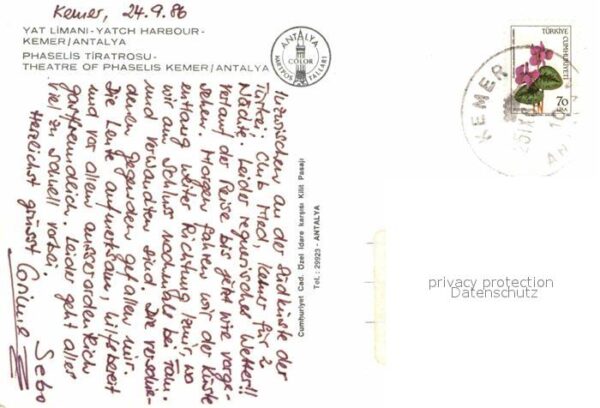 Kemer, 24.9.86
YAT LIMANI-YATCH HARBOUR-
KEMER/ANTALYA
PHASELIS TİRATROSU-
THEATRE OF PHASELIS KEMER/ANTALYA
ANTALYA
COLOR
KARTPOSTALLARI
Inzwischen an der Südküste der
Türkei, Club Med, Kemer für 2
Nächte. Leider regnerisches Wetter!!
Verlauf der Reise bis jetzt wie vorge-
sehen. Morgen fahren wir der Küste
entlang weiter Richtung Izmir, wo
wir am Schluss nochmals bei Fam.
und Verwandten sind. Die verschie-
denen Gegenden gefallen mir.
Die Leute aufmerksam, hilfsbereit
und vor allem ausserordentlich
gastfreundlich. Leider geht alles
viel zu schnell vorbei.
Herzlichst grüsst
Sebo
Cumhuriyet Cad. Özel İdare karşısı Kilit Pasajı
Tel.: 29923 - ANTALYA
TÜRKİYE
CUMHURİYETİ
70
LİRA
KEMER
privacy protection
Datenschutz